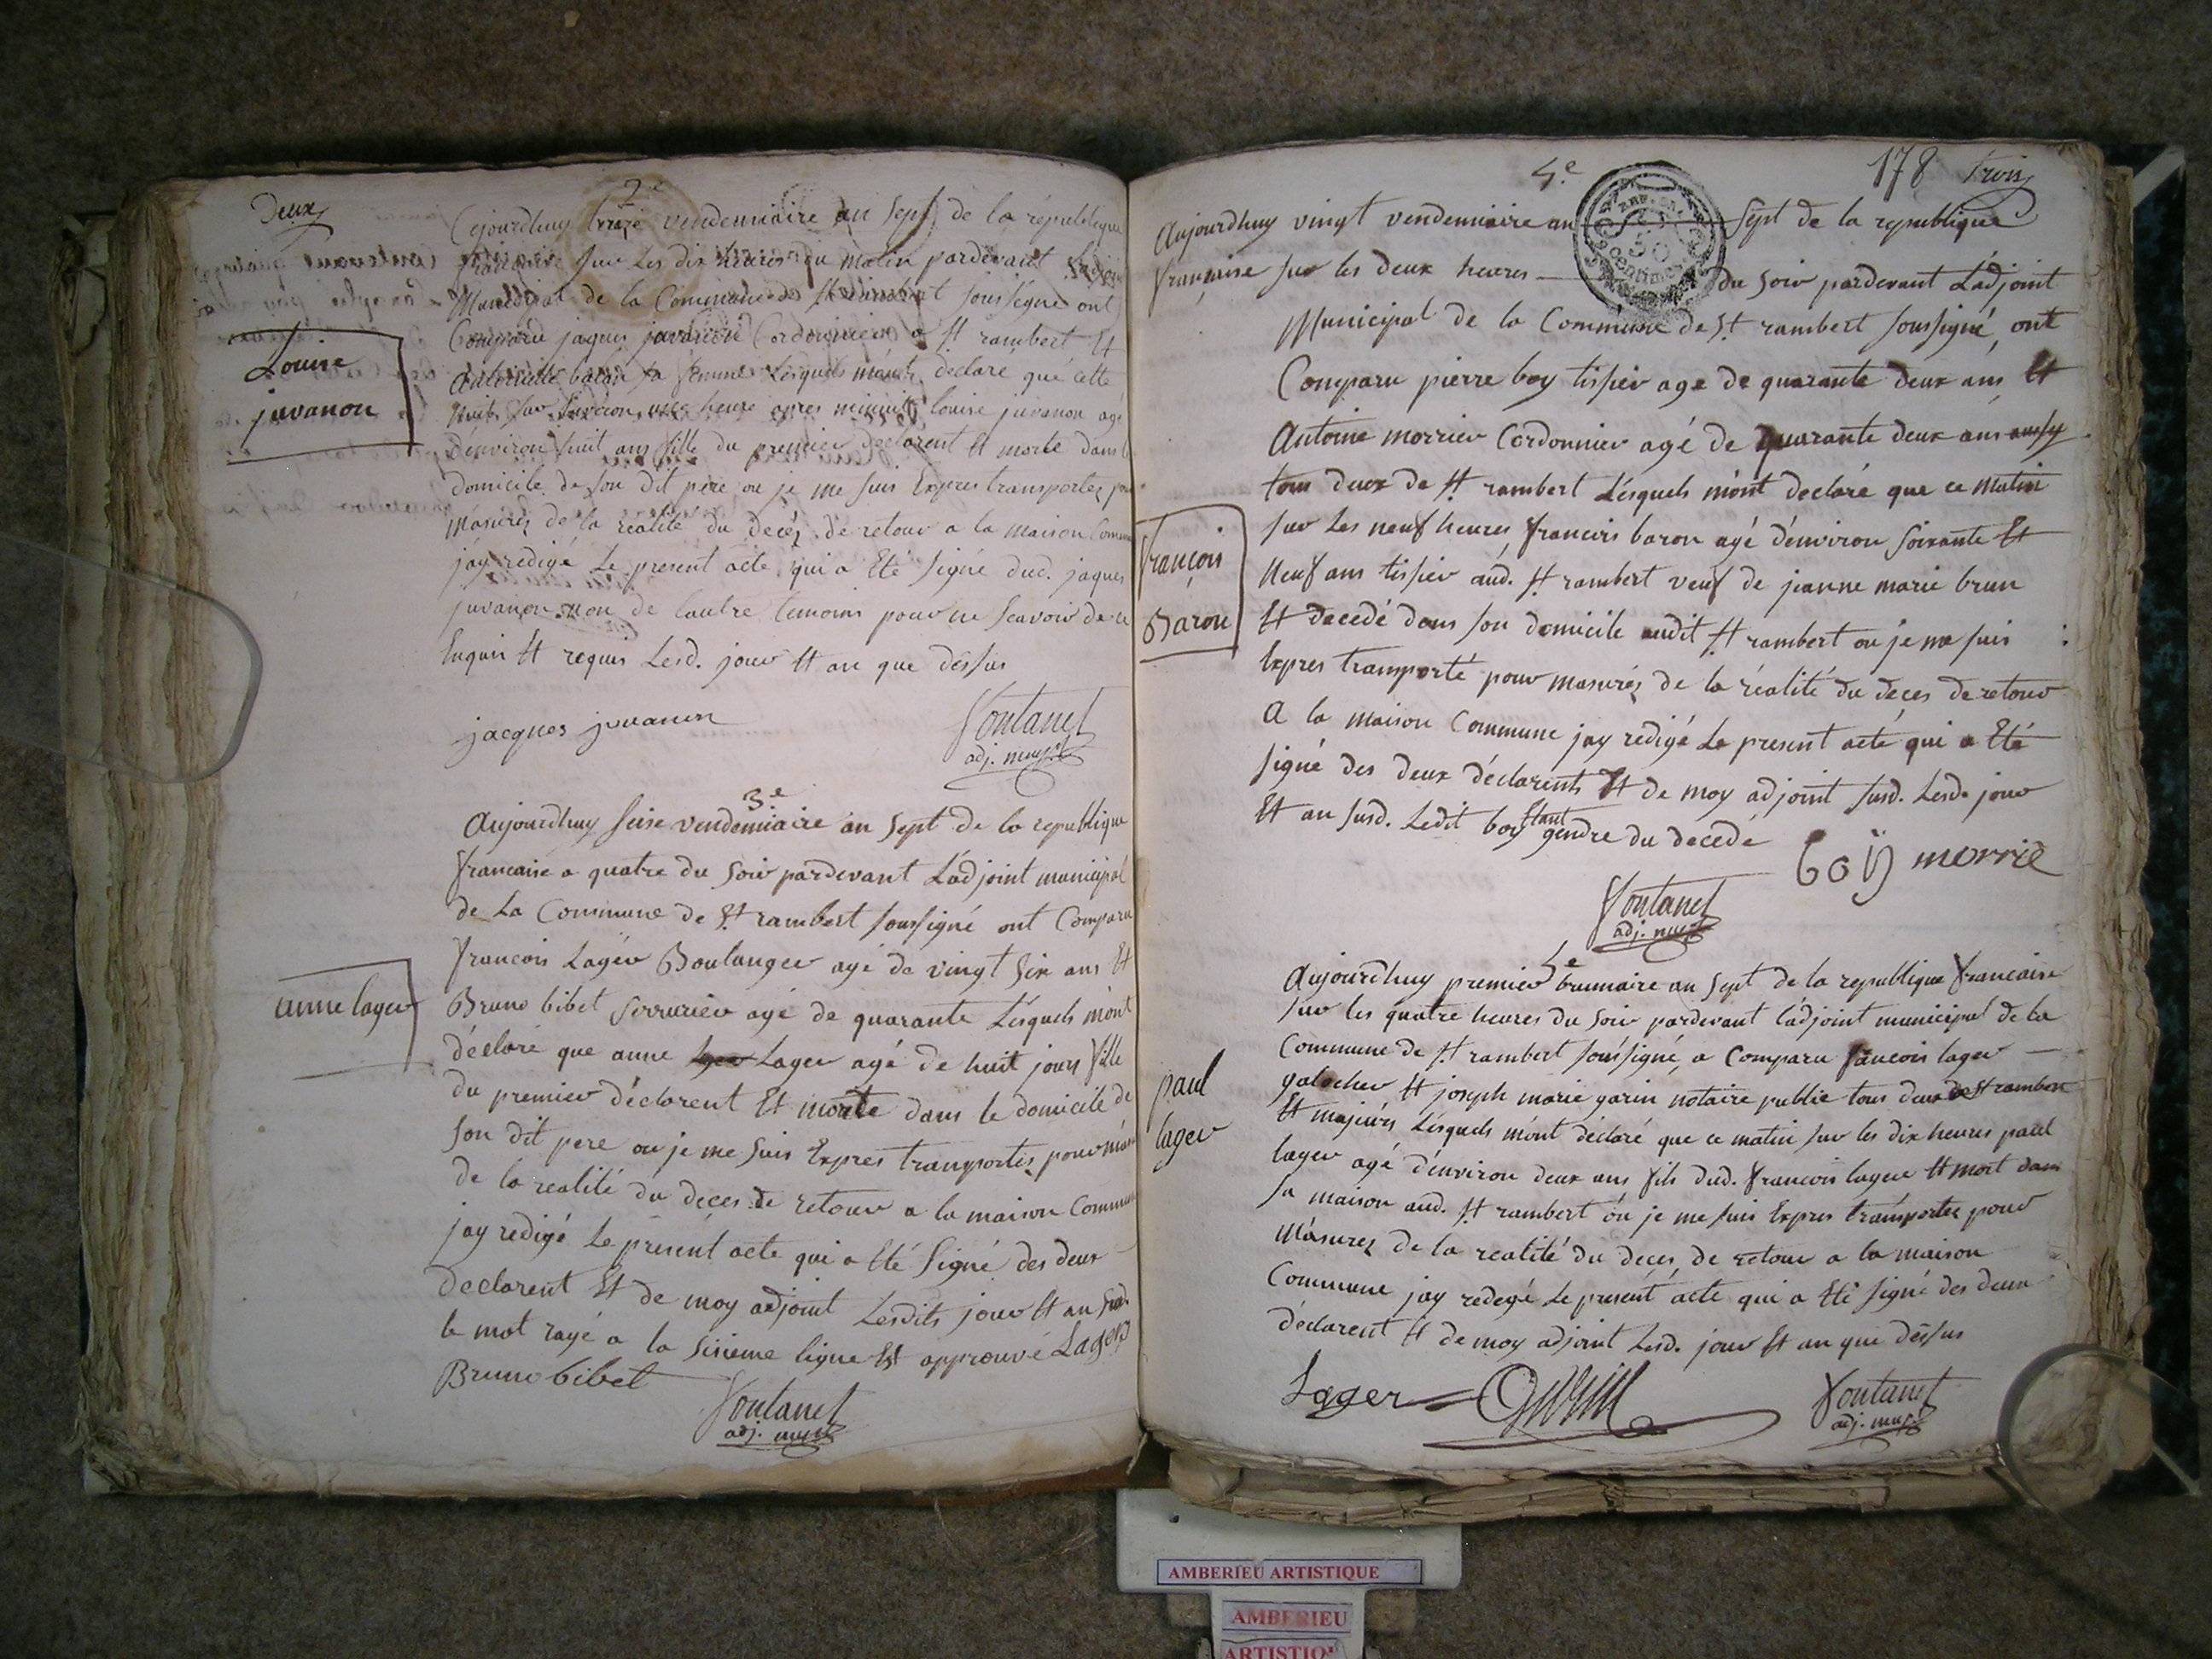 Deux
2e
Cejourdhuy treize vendemiaire an sept de la république
francaise sur les dix heures du matin pardevant
Municipal de la Commune de St rambert soussigné ont
Comparu jaques juvanon Cordonnier a St rambert Et
antoinette balan sa femme Lesquels m'ont declaré que cette
nuit sur environ une heure apres minuit louise juvanon agé
Louise
juvanon
d'environ huit ans fille du premier declarent Et morte dans le
domicile de son dit pere ou je me suis Expres transportez pour
m'asurez de la realité du decéz de retour a la maison Commune
jay redigé Le present acte qui a Eté signé dud. jaques
juvanon non de lautre temoins pour ne scavoir de ce
Enquis Et requis Lesd. jour Et an que dessus
jacques juvanon
Fontanel
adj. mupl
3e
Aujourdhuy seise vendemiaire an Sept de la republique
francaise a quatre du soir pardevant L'adjoint municipal
de La Commune de St rambert soussigné ont Comparu
francois Lager Boulanger agé de vingt six ans Et
anne lager
Bruno bibet serrurier agé de quarante Lésquels mont
déclaré que anne lger Lager agé de huit jours fille
du premier déclarent Et morte dans le domicile de
son dit pere ou je me suis Expres transportés pour
de la realité du deces de retour a la maison Commune
jay redigé Le présent acte qui a Eté Signé des deux
declarent Et de moy adjoint Lesdits jour Et an susd.
le mot rayé a la sixieme ligne Est approuvé Lager
Bruno bibet
Fontanel
adj. mupl
4.e
178 trois
REP. FRA.
50
centimes
Aujourdhuy vingt vendemiaire an Sept de la republique
francaise sur les deux heures du soir pardevant L'adjoint
Municipal de la Commune de St. rambert soussigné, ont
Comparu pierre boy tissier age de quarante deux ans Et
Antoine morrier Cordonnier agé de quarante deux ans aussy
tous deux de St rambert Lésquels m'ont declaré que ce matin
sur Les neuf heures francois baron agé d'environ soixante Et
françois
Baron
Neuf ans tissier aud. St rambert veuf de jeanne marie brun
Et decedé dans son domicile audit St rambert ou je me suis
Expres transporté pour masurez de la réalité du deces de retour
a la maison Commune jay redigé Le present acte qui a Eté
signé des deux déclarents Et de moy adjoint susd. Lesd. jour
Et an susd. Ledit boy Etant gendre du decedé
boÿ morrie
Fontanel
adj. mupl
5e
Aujourdhuy premier brumaire an Sept de la republique francaise
sur les quatre heures du soir pardevant l'adjoint municipal de la
Commune de St rambert soussigné, a Comparu fancois lager
paul
lager
galocher Et joseph marie garin notaire public tous deux de St rambert
Et majeurs Lésquels m'ont declaré que ce matin sur les dix heures paul
lager agé d'environ deux ans fils dud. francois lager Et mort dans
sa maison aud. St rambert ou je me suis Expres transportez pour
M'asurez de la realité du deces, de retour a la maison
Commune jay redegé Le présent acte qui a Eté signé des deux
déclarent Et de moy adjoint Lesd. jour Et an que dessus
Lager Garin
Fontanel
adj. mupl
AMBERIEU ARTISTIQUE
AMBERIEU
ARTISTIQU